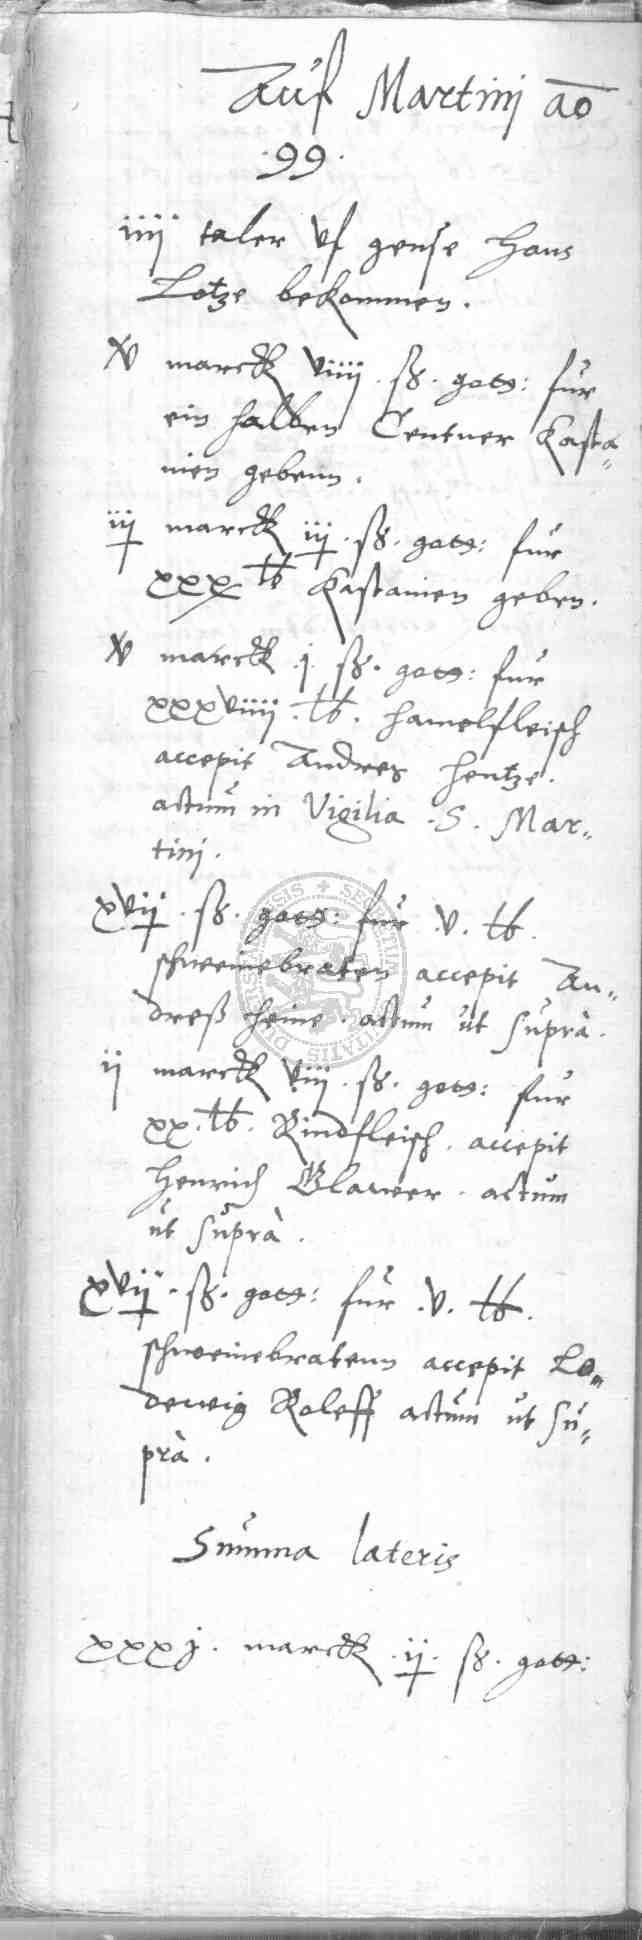 Auf Martini ao
·99·
iiij taler vf gense Hans
Lotze bekommen.
xv marck viiij. ß. gott: für
ein halben Centner Kasta„
nien gebenn.
iij marck iij. ß. gott: für
xxx lb Kastanien geben.
xv marck .j. ß. gott: für
xxxviiij. lb. hamelfleisch
accepit Andres Hentze.
actum in Vigilia .S. Mar„
tini.
xvij. ß. gott: für .v. lb.
schweinebraten accepit An„
dreß Heine. actum ut suprà.
ij marck viij. ß. gott: für
xx. lb. Rindfleisch. accepit
Henrich Blawer. actum
ut suprà.
xvij. ß. gott: für .v. lb.
schweinebratenn accepit Lo„
dewig Roleff actum ut su„
prà.
Summa lateris
xxxj. marck .ij. ß. gott: